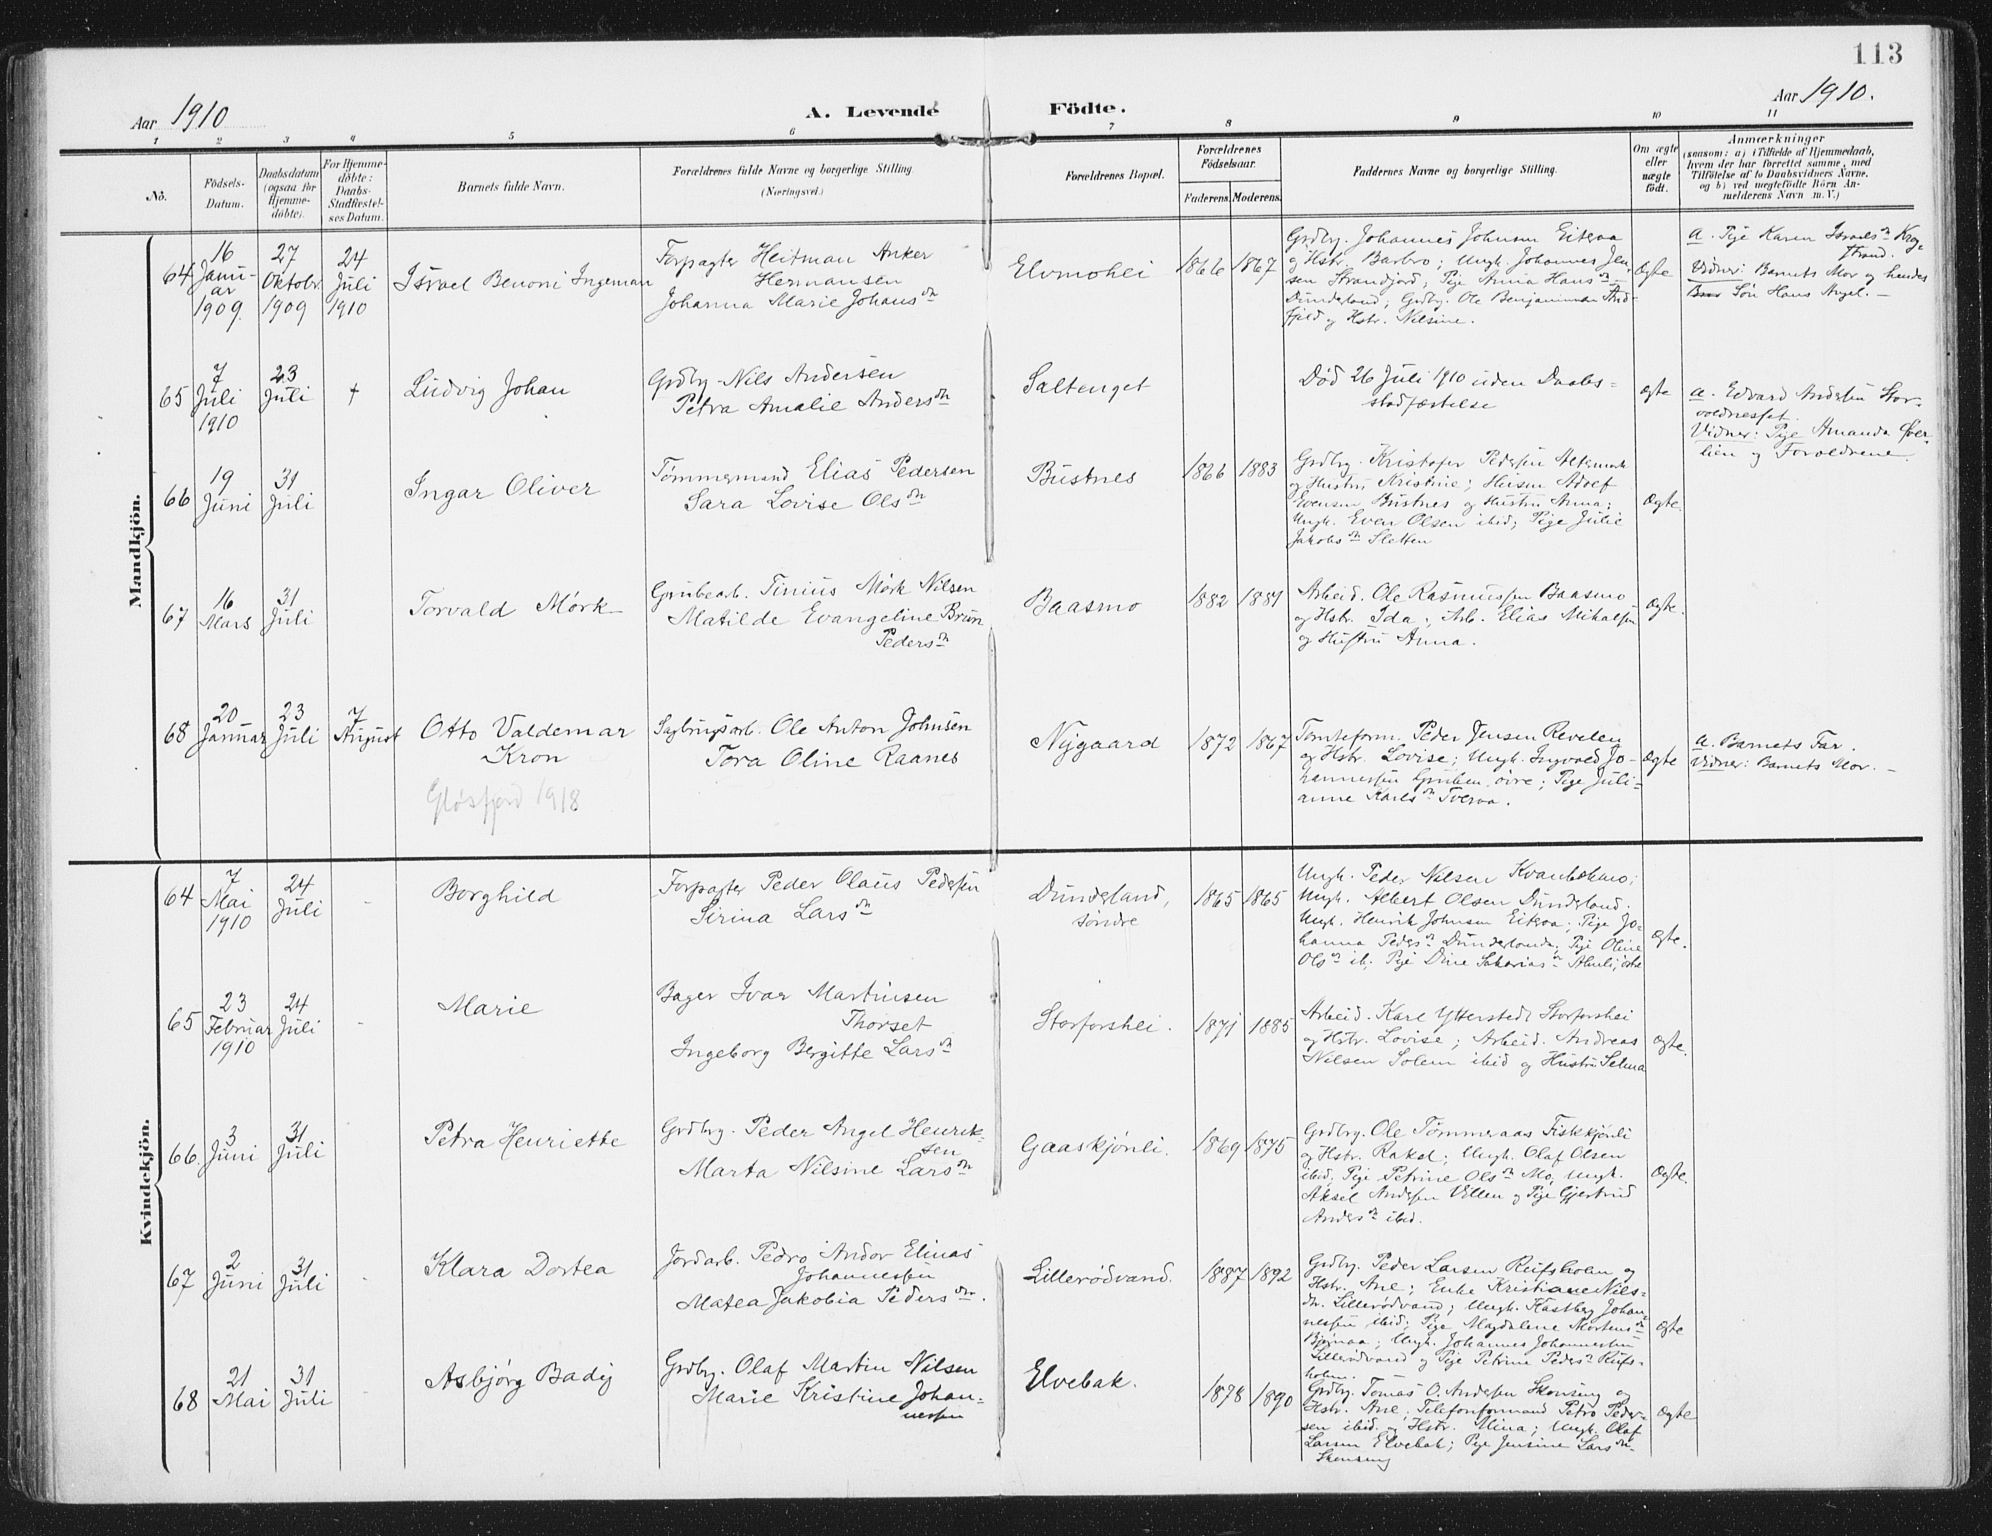 113
Aar 1910
A. Levende Födte.
Aar 1910.
1 2 3 4 5 6 7 8 9 10 11
No.
Födsels-
Datum.
Daabsdatum
(ogsaa for
Hjemme-
döbte).
For Hjemme-
döbte:
Daabs-
Stadfæstel-
ses Datum.
Barnets fulde Navn.
Forældrenes fulde Navne og borgerlige Stilling.
(Næringsvei.)
Forældrenes Bopæl.
Forældrenes
Födselsaar.
Faderens. Moderens.
Faddernes Navne og borgerlige Stilling.
Om ægte
eller
uægte
födt.
Anmærkninger
(saasom: a) i Tilfælde af Hjemmedaab,
hvem der har forrettet samme, med
Tilföielse af to Daabsvidners Navne,
og b) ved uægtefödte Börn An-
melderens Navn m. V.)
Mandkjön.
64
16
Janu-
ar
1909
27
Oktobr.
1909
24
Juli
1910
Israel Benoni Ingeman
Forpagter Heitman Anker
Hermansen
Johanna Marie Johansdn
Elvmohei
1866 1867
Grdbr. Johannes Johnsen Eiteraa
og Hstr. Barbro; Ungk. Johannes Jen-
sen Strandjord; Pige Anna Hansdn
Dunderland; Grdbr. Ole Benjaminsen
og Hstr. Nilsine.
Ægte
a. Pige Karen Israelsdn Krog-
strand.
Vidner: Barnets Mor og hendes
Søn Hans Angel. —
65
7
Juli
1910
23
Juli
+
Ludvig Johan
Grdbr. Nils Andersen
Petra Amalie Andersdn
Saltenget
Død 26 Juli 1910 uden Daabs=
stadfæstelse
ægte
a. Edvard Andersen Stor-
voldnesset.
Vidner: Pige Amanda Øver-
lien og Foreldrene
66
19
Juni
31
Juli
Ingar Oliver
Tømmermand Elias Pedersen
Sara Lovise Olsdn
Bustnes
1866 1883
Grdbr. Kristofer Pedersen Altermark
og Hustru Kristine; Husm Adolf
Evensen Bustnes og Hustru Anna;
Ungk. Even Olsen ibid; Pige Julie
Jakobsdn Sletten
Ægte.
67
16
Mars
31
Juli
Torvald Mörk
Grubearb. Tinius Mörk Nilsen
Matilde Evangeline Brun
Pedersdn
Baasmo
1882 1881
Arbeid. Ole Rasmussen Baasmo
og Hstr. Ida; Arb. Elias Mikalsen
og Hustru Anna.
Ægte.
68
20
Januar
23
Juli
7
August
Otto Valdemar
Kron
Gløsfjord 1918
Sagbrugsarb. Ole Anton Johnsen
Tora Oline Raanes
Nygaard
1872 1867
Tomteform. Peder Jensen Revelen
og Hstr. Lovise; Ungk. Ingvald Jo-
hannessen Gruben, övre; Pige Juli-
anne Karlsdn Tveraa.
Ægte
a. Barnets Far.
Vidner: Barnets Mor. —
Kvindekjön.
64
7
Mai
1910
24
Juli
Borghild
Forpagter Peder Olaus Pedersen
Sirina Larsdn
Dunderland,
söndre
1865 1865
Ungk. Peder Nilsen
Ungk. Albert Olsen Dunderland.
Ungk. Henrik Johnsen Eiteraa; Pige Jo-
hanna Pedersdn Dunderland; Pige Oline
Olsdn ib; Pige Dine Sakariasdn
Ægte.
65
23
Februar
1910
24
Juli
Marie
Bager Ivar Martinsen
Thorset
Ingeborg Bergitte Larsdn
Storforshei.
1871 1885
Arbeid. Karl Ytterstedt Storforshei
og Hstr. Lovise; Arbeid. Andreas
Nilsen Solem ibid og Hustru Selma
Ægte.
66
3
Juni
31
Juli
Petra Henriette
Grdbr. Peder Angel Henrik-
sen
Marta Nilsine Larsdn
Gaaskjönli.
1869 1875
Grdbr. Ole Tömmeraas Fiskkjönli
og Hstr. Rakel; Ungk. Olaf Olsen
ibid; Pige Petrine Olsdn Mo, Ungk.
Aksel Andersen Villen og Pige Gjertrud
Andersdn ibid.
Ægte.
67
2
Juni
31
Juli
Klara Dortea
Jordarb. Pedro Andor Elinas
Johannessen
Matea Jakobia Pedersdn.
Lillerödvand.
1887 1892
Grdbr. Peder Larsen Reifsholm og
Hstr. Ane; Enke Kristiane Nils-
dn. Lillerödvand; Ungk. Hastberg Johan-
nessen ibid; Pige Magdalene Mortensdn
Bjørnaa; Ungk. Johannes Johannessen
Lillerödvand og Pige Petrine Pedersdn Reifs-
holm.
Ægte
68
21
Mai
31
Juli
Asbjörg Badig
Grdbr. Olaf Martin Nilsen
Marie Kristine Johan-
nessen
Elvebak.
1878 1890
Grdbr. Tomas O. Andersen Skonseng og
Hstr. Ane; Telefonformand Petro Peder-
sen ibid. og Hstr. Mina; Ungk. Olaf
Larsen Elvebak; Pige Jensine Larsdn
Skonseng
Ægte